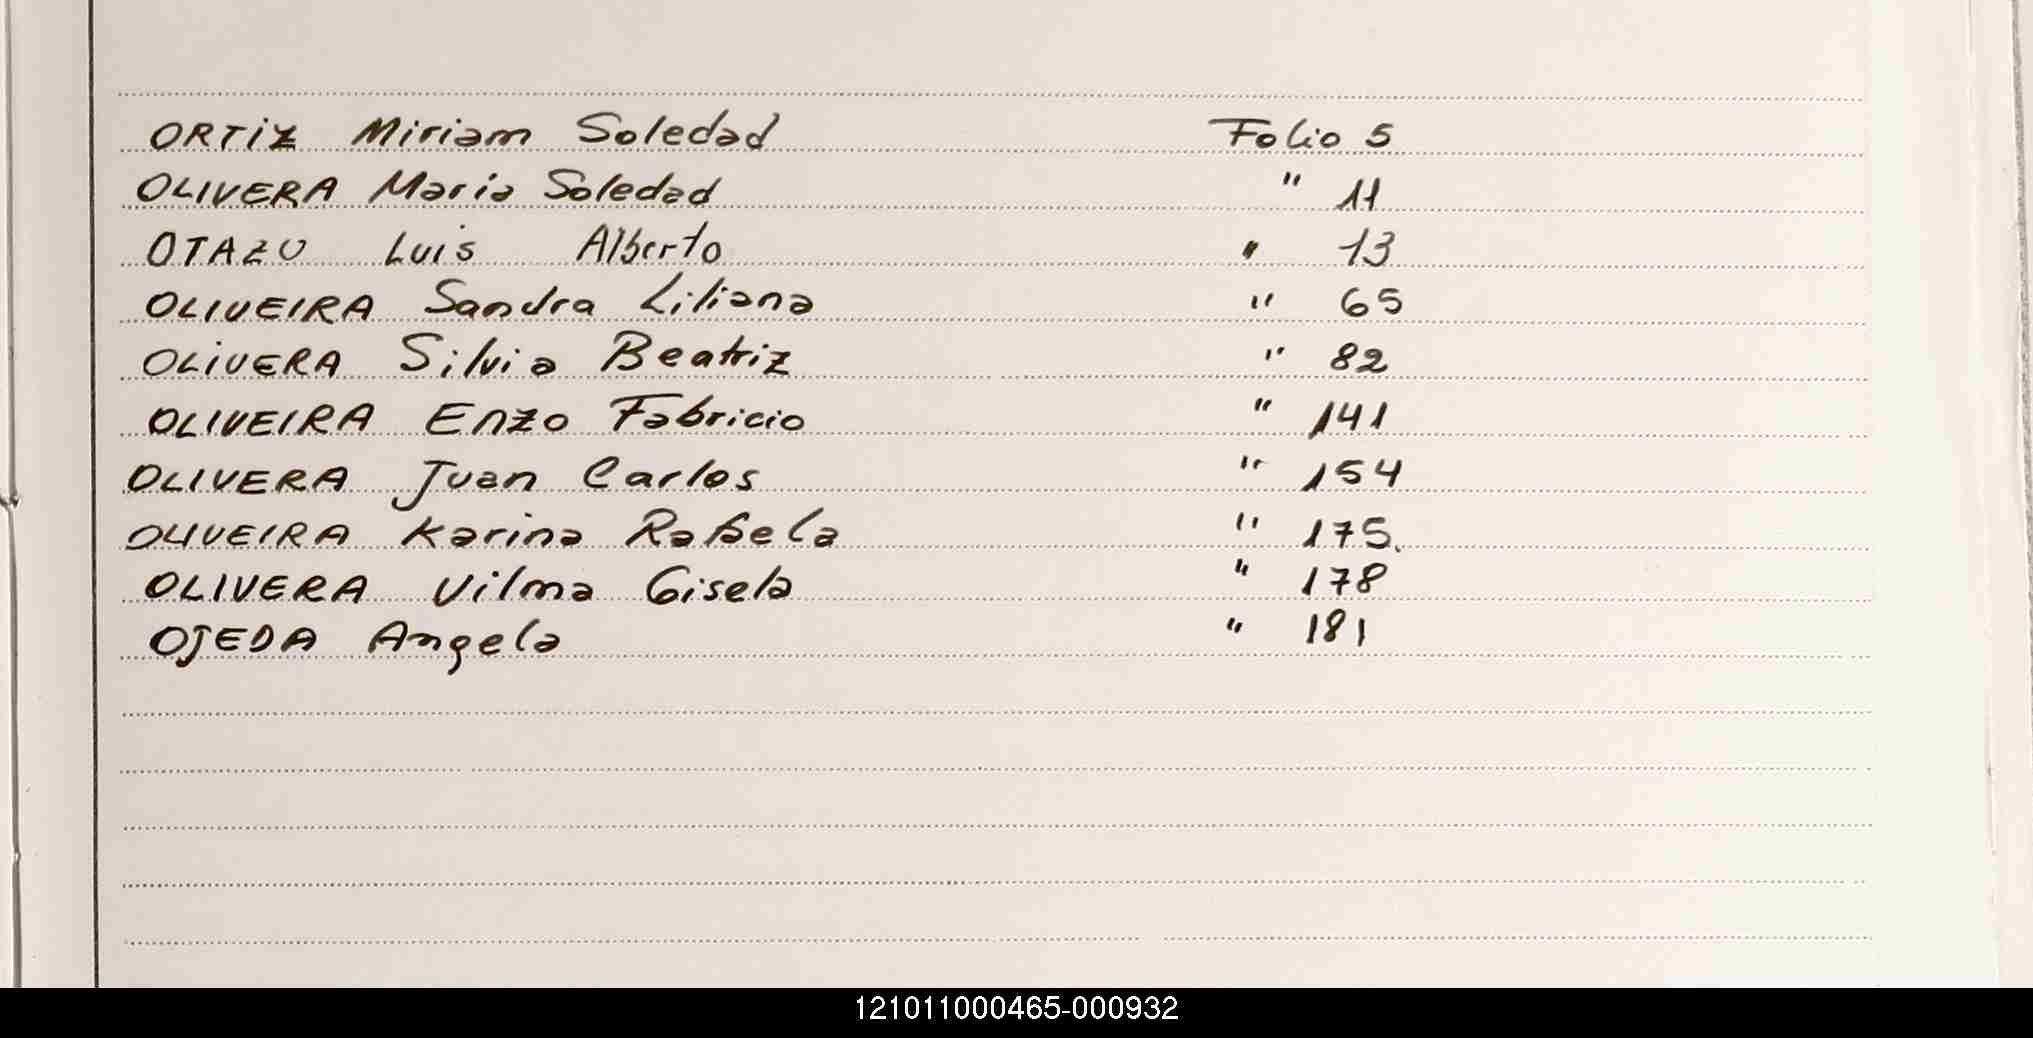 ORTIZ Miriam Soledad Folio 5
OLIVERA Maria Soledad " 11
OTAZU Luis Alberto " 13
OLIVEIRA Sandra Liliana " 65
OLIVERA Silvia Beatriz " 82
OLIVEIRA Enzo Fabricio " 141
OLIVERA Juan Carlos " 154
OLIVEIRA Karina Rafaela " 175.
OLIVERA Vilma Gisela " 178
OJEDA Angela " 181
121011000465-000932